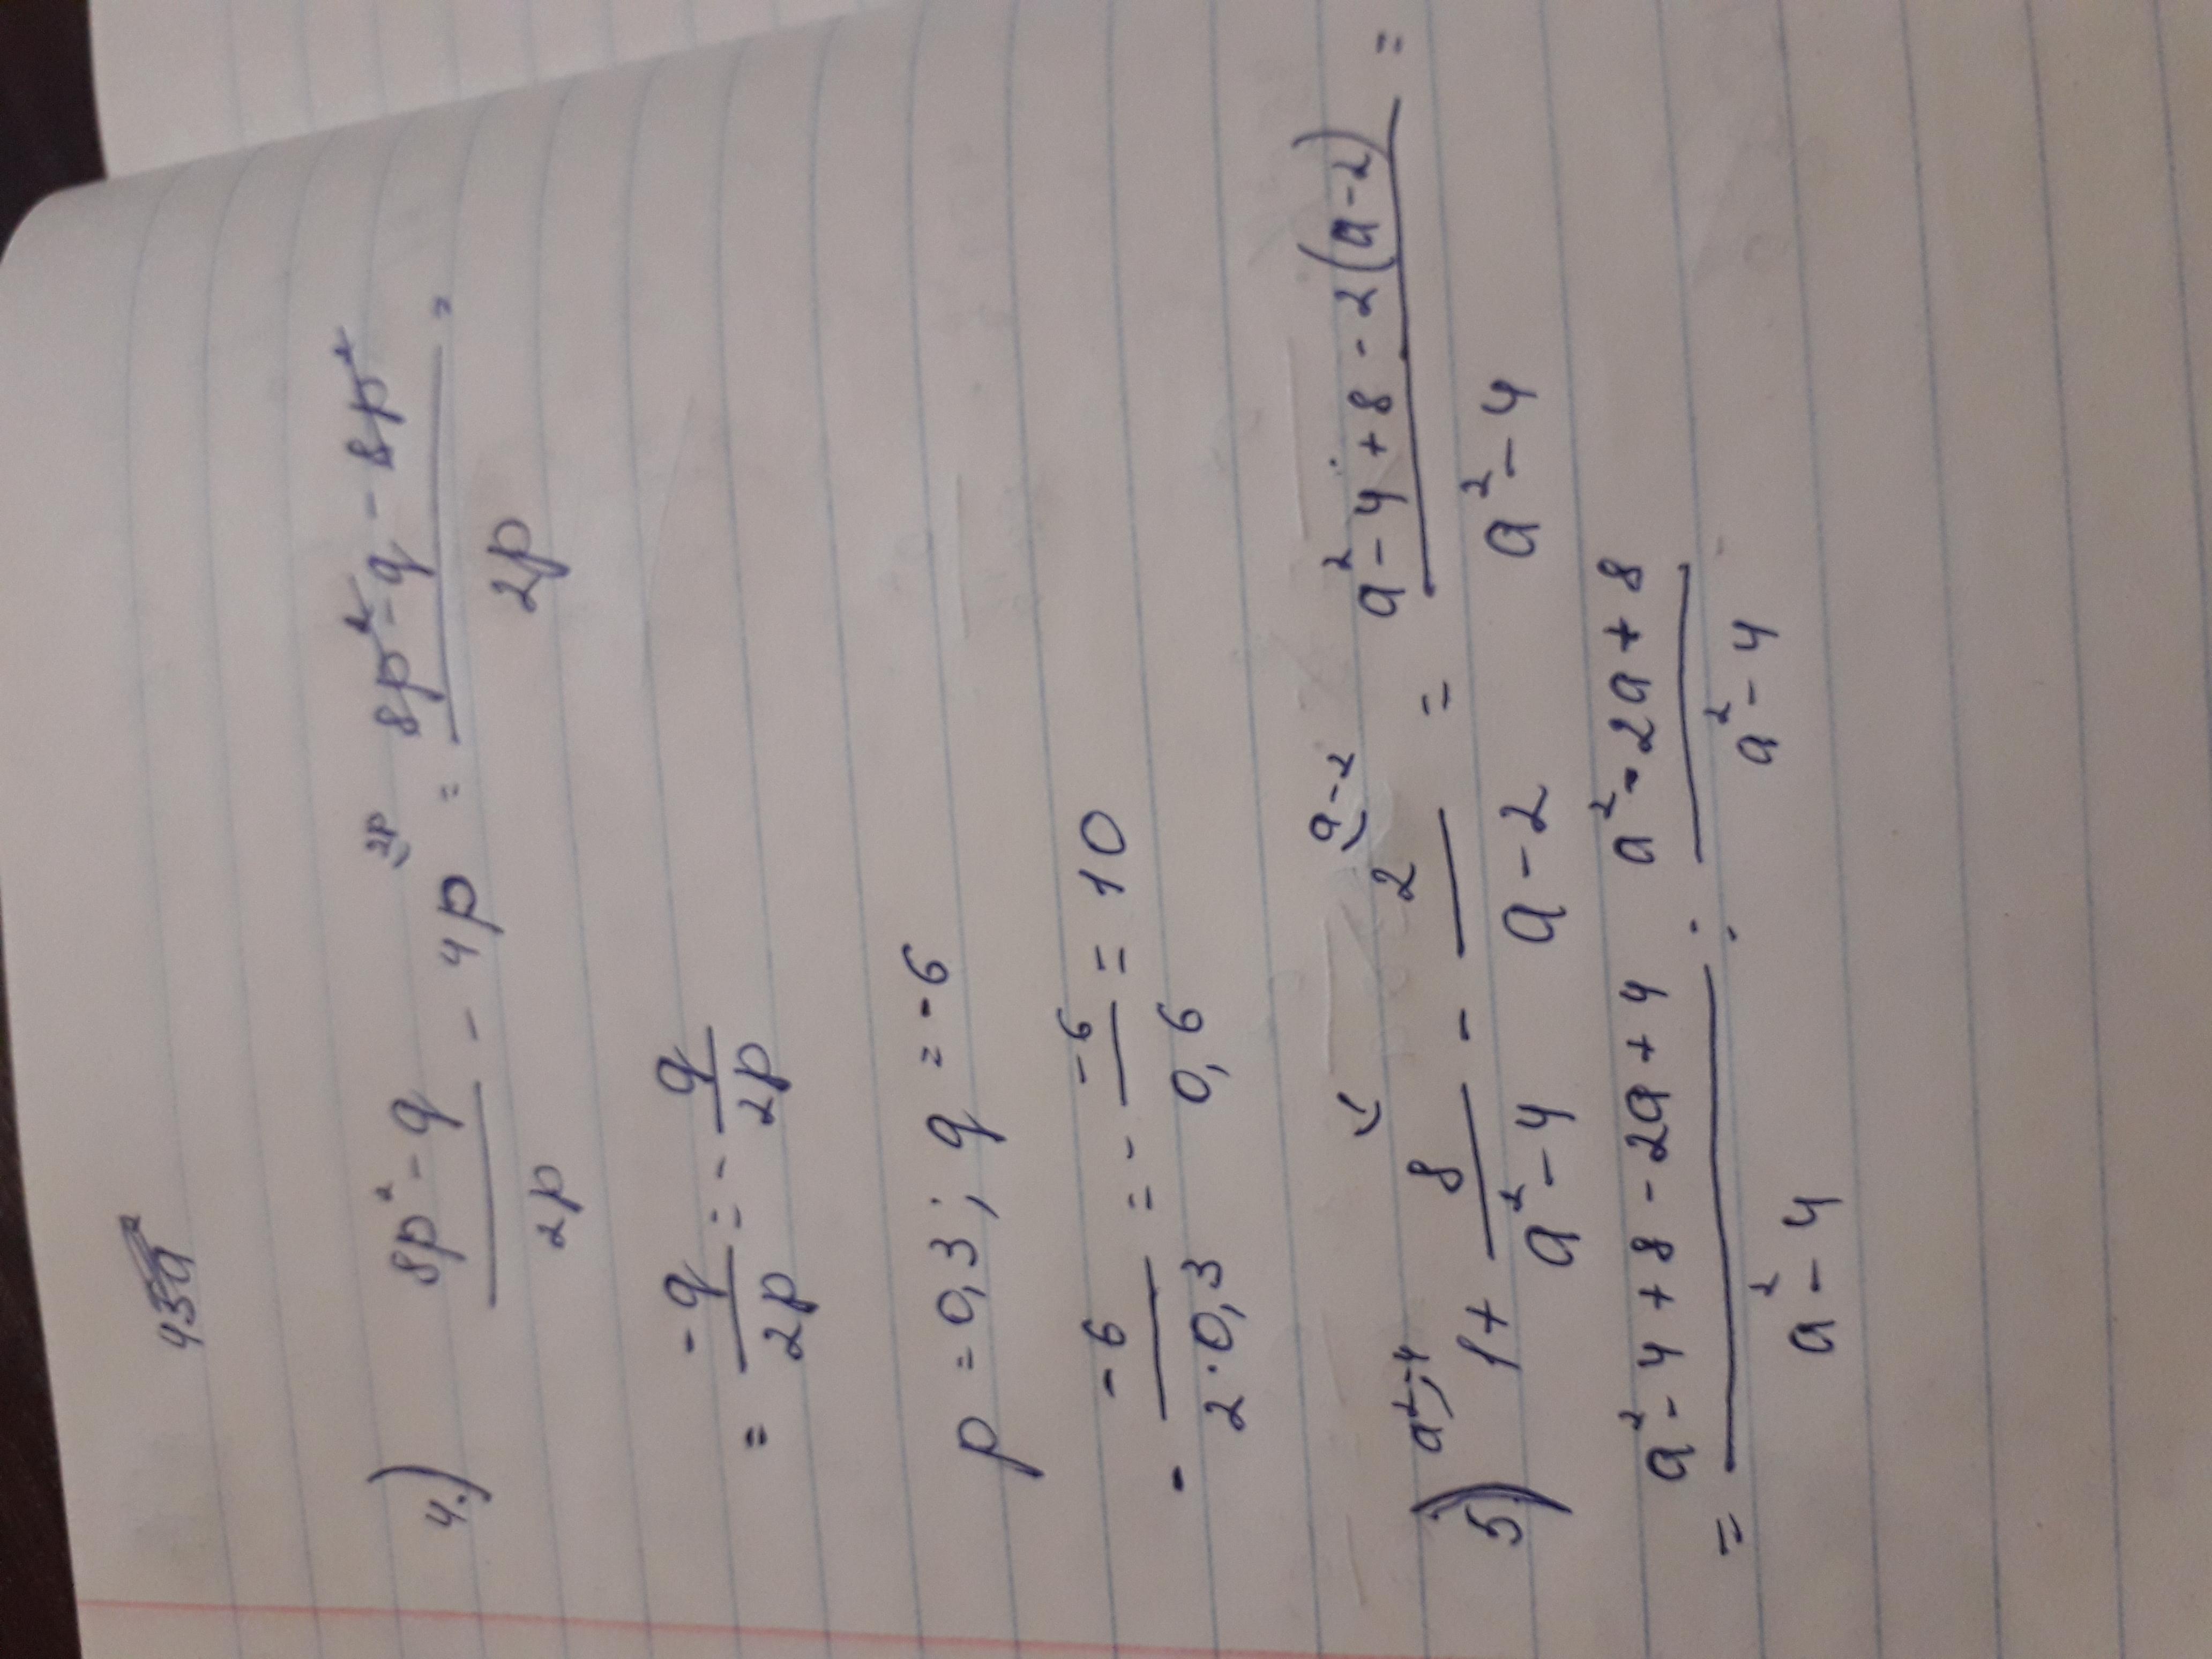 4.) (8p² - q)/(2p) - 4p^{\2p} = (8p² - q - 8p²)/(2p) =
= (-q)/(2p) = - q/(2p)
p = 0,3 ; q = -6
- (-6)/(2·0,3) = - (-6)/(0,6) = 10
5) ^{a²-4\} 1 + 8^{\1}/(a² - 4) - 2^{\a-2}/(a - 2) = (a² - 4 + 8 - 2(a-2))/(a² - 4) =
= (a² - 4 + 8 - 2a + 4)/(a² - 4) : (a² - 2a + 8)/(a² - 4)